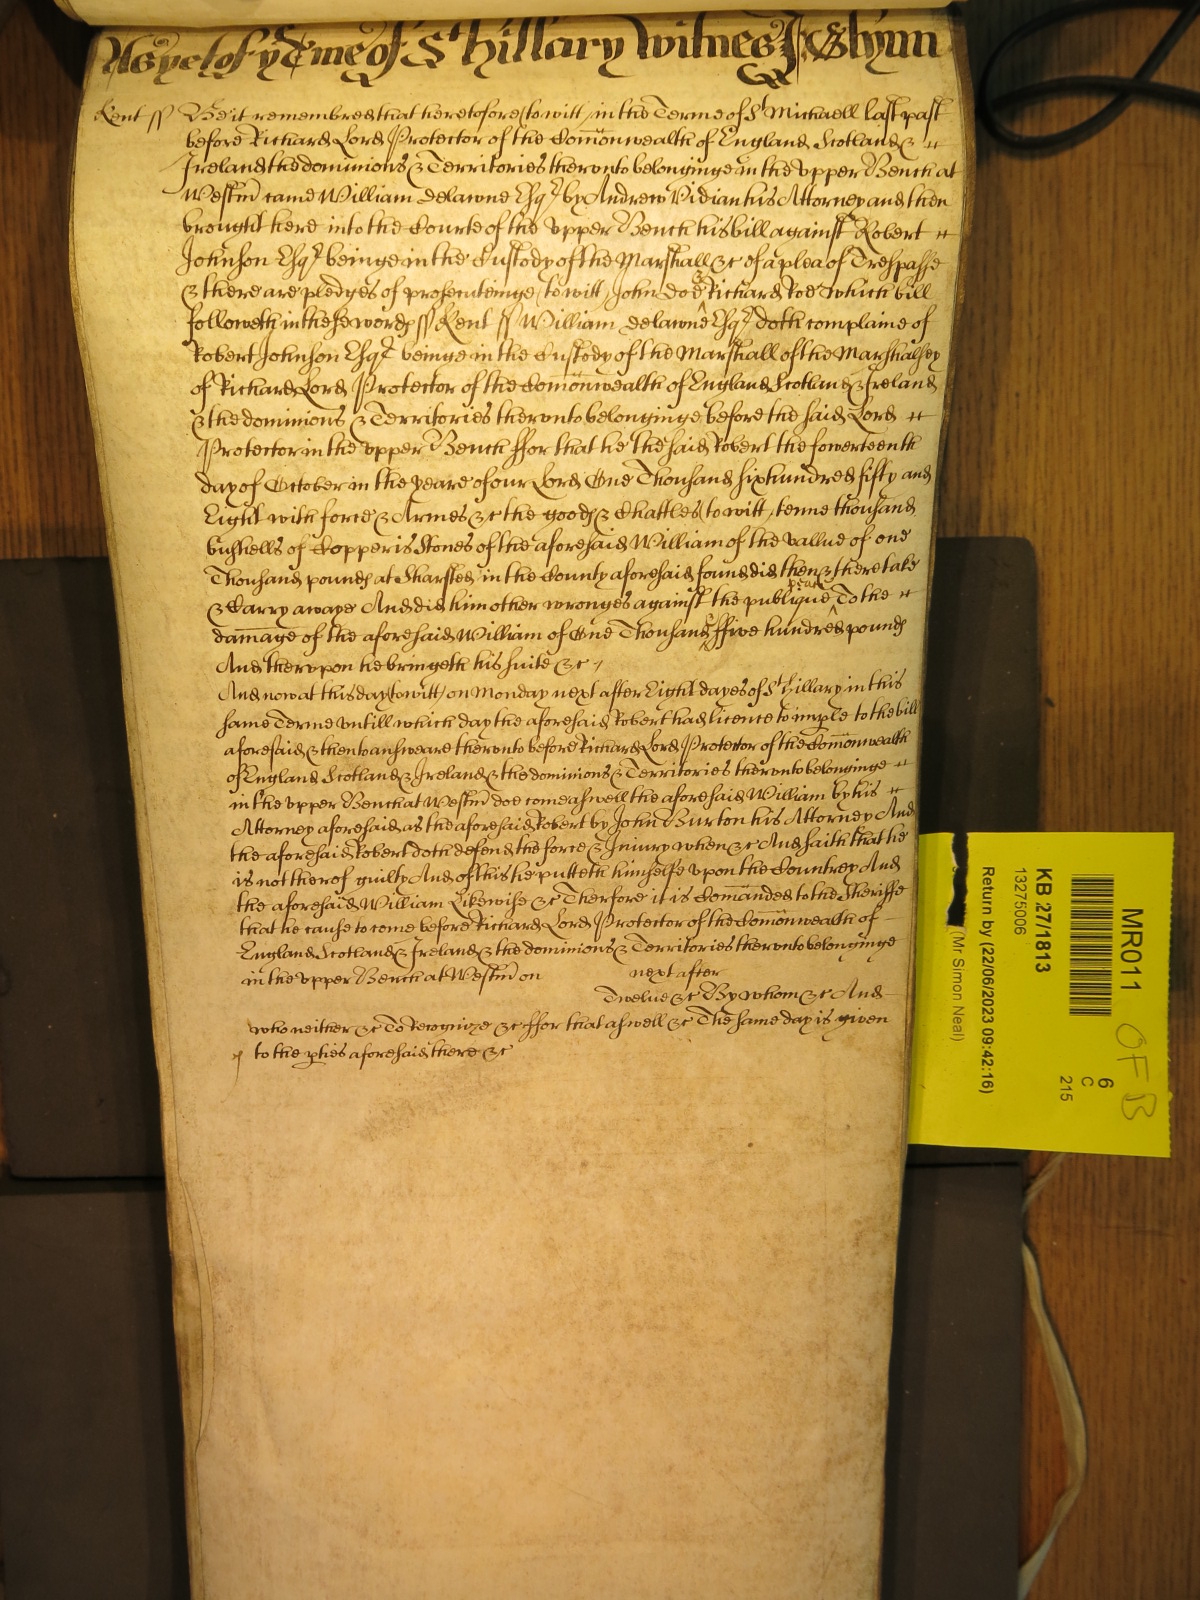 As yet of ye Tme of St Hillary Witnes J Glynn
Kent ss Be it remembred that heretofore (to witt) in the Terme of St Michaell last past
before Richard Lord Protector of the Comonwealth of England Scotland &
Ireland & the dominions & Territories therunto belonginge in the upper Bench at
Westm̄ came William delawne Esqr by Andrew Vidian his Attorney and then
brought here into the Courte of the upper Bench his bill against Robert
Johnson Esqr beinge in the Custody of the Marshall &c of a plea of Trespasse
& there are pledges of prosecuteinge (to witt) John Doe & Richard Roe which bill
followeth in these words ss Kent ss William delawne Esqr doth complaine of
Robert Johnson Esqr beinge in the Custody of the Marshall of the Marshalsey
of Richard Lord Protector of the Comonwealth of England Scotland & Ireland
& the dominions & Territories therunto belonginge before the said Lord
Protector in the upper Bench ffor that he the said Robert the fowerteenth
day of October in the yeare of our Lord One Thousand six hundred fifty and
Eight with force & Armes &c the goods & Chattles (to witt) tenne thousand
bushells of Copperis Stones of the aforesaid William of the vallue of one
Thousand pounds at Sharsted in the County aforesaid found did then & there take
& Carry awaye And did him other wronges against the publique peace To the
damage of the aforesaid William of One Thousand & ffive hundred pounds
And therupon he bringeth his suite &c
And now at this day (to witt) on Monday next after Eight dayes of St Hillary in this
same Terme untill which day the aforesaid Robert had licence to imple to the bill
aforesaid & then to answeare therunto before Richard Lord Protector of the Comonwealth
of England Scotland & Ireland & the dominions & Territories therunto belonginge
in the upper Bench at Westm̄ doe come aswell the aforesaid William by his
Attorney aforesaid as the aforesaid Robert by John Burton his Attorney And
the aforesaid Robert doth defend the force & Injury when &c And saith that he
is not therof guilty And of this he putteth himselfe upon the Countrey And
the aforesaid William Likewise &c Therfore it is Comanded to the Sheriffe
that he cause to come before Richard Lord Protector of the Comonwealth of
England Scotland & Ireland & the dominions & Territories therunto belonginge
in the upper Bench at Westm̄ on next after
Twelve &c By whom &c And
who neither &c To Recognize &c ffor that aswell &c The same day is given
to the pties aforesaid there &c
MR011
OFB
6
C
215
KB 27/1813
13275006
Return by (22/06/2023 09:42:16)
(Mr. Simon Neal)